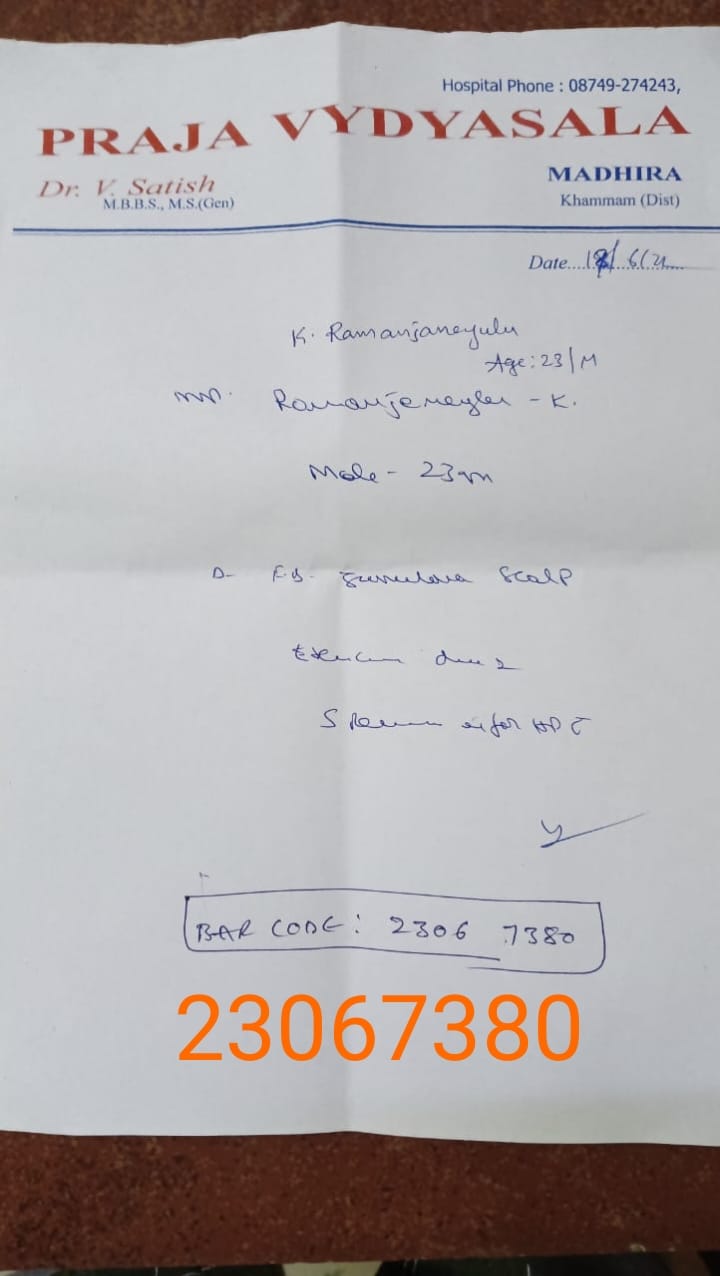 Hospital Phone : 08749-274243,
PRAJA VYDYASALA
Dr. V. Satish
M.B.B.S., M.S.(Gen)
MADHIRA
Khammam (Dist)
Date....18/6/21....
K. Ramanjaneyulu
Age: 23/M
K.
Male - 23
Scalp
for HPE
BAR CODE: 2306 7380
23067380